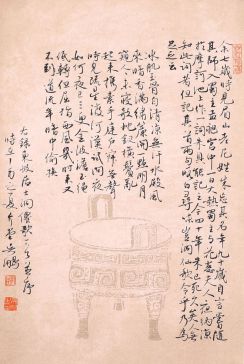 余七歲時見眉山老尼姓朱忘其名年九十歲自言嘗隨
其師入蜀主孟昶宮中一日大熱蜀主與花蕊夫人夜納涼
於摩訶池上作一詞朱具能記之今四十年朱已死久矣人無
知此詞者但記其首兩句暇日尋味豈洞仙歌令乎乃為
足之云
冰肌玉骨自清涼無汗水殿風
來暗香滿繡簾開一點明月
窺人人未寢欹枕釵橫鬢亂
起來攜素手庭戶無聲
時見疏星渡河漢試問夜
如何夜已三更金波淡玉繩
低轉但屈指西風幾時來又
不道流年暗中偷換
右錄東坡居士洞仙歌一首并序